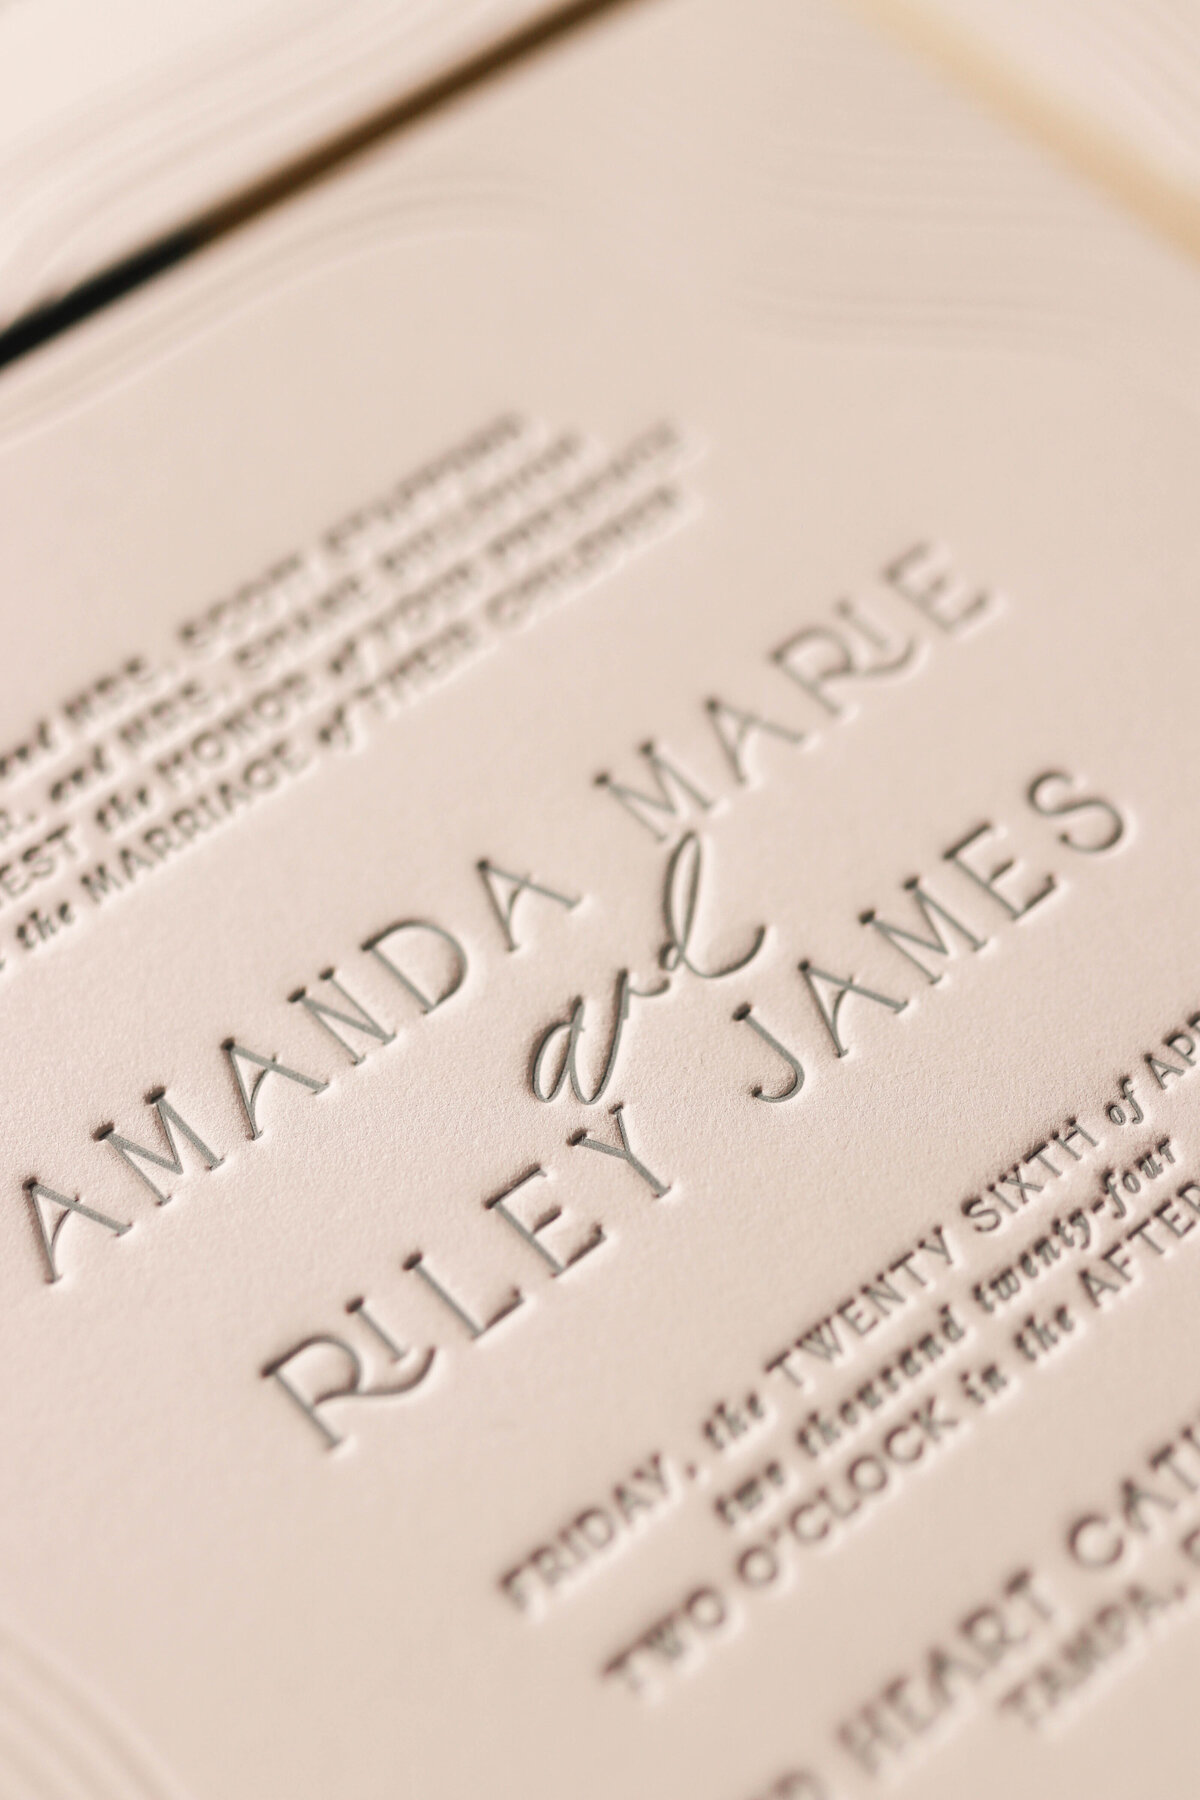 and MRS. SCOTT
R. and MRS. SHANE
EST the HONOR of YOUR PRESENCE
the MARRIAGE of THEIR CHILDREN
AMANDA MARIE
and
RILEY JAMES
FRIDAY, the TWENTY SIXTH of APR
two thousand twenty-four
TWO O'CLOCK in the AFTER
HEART CATH
TAMPA,